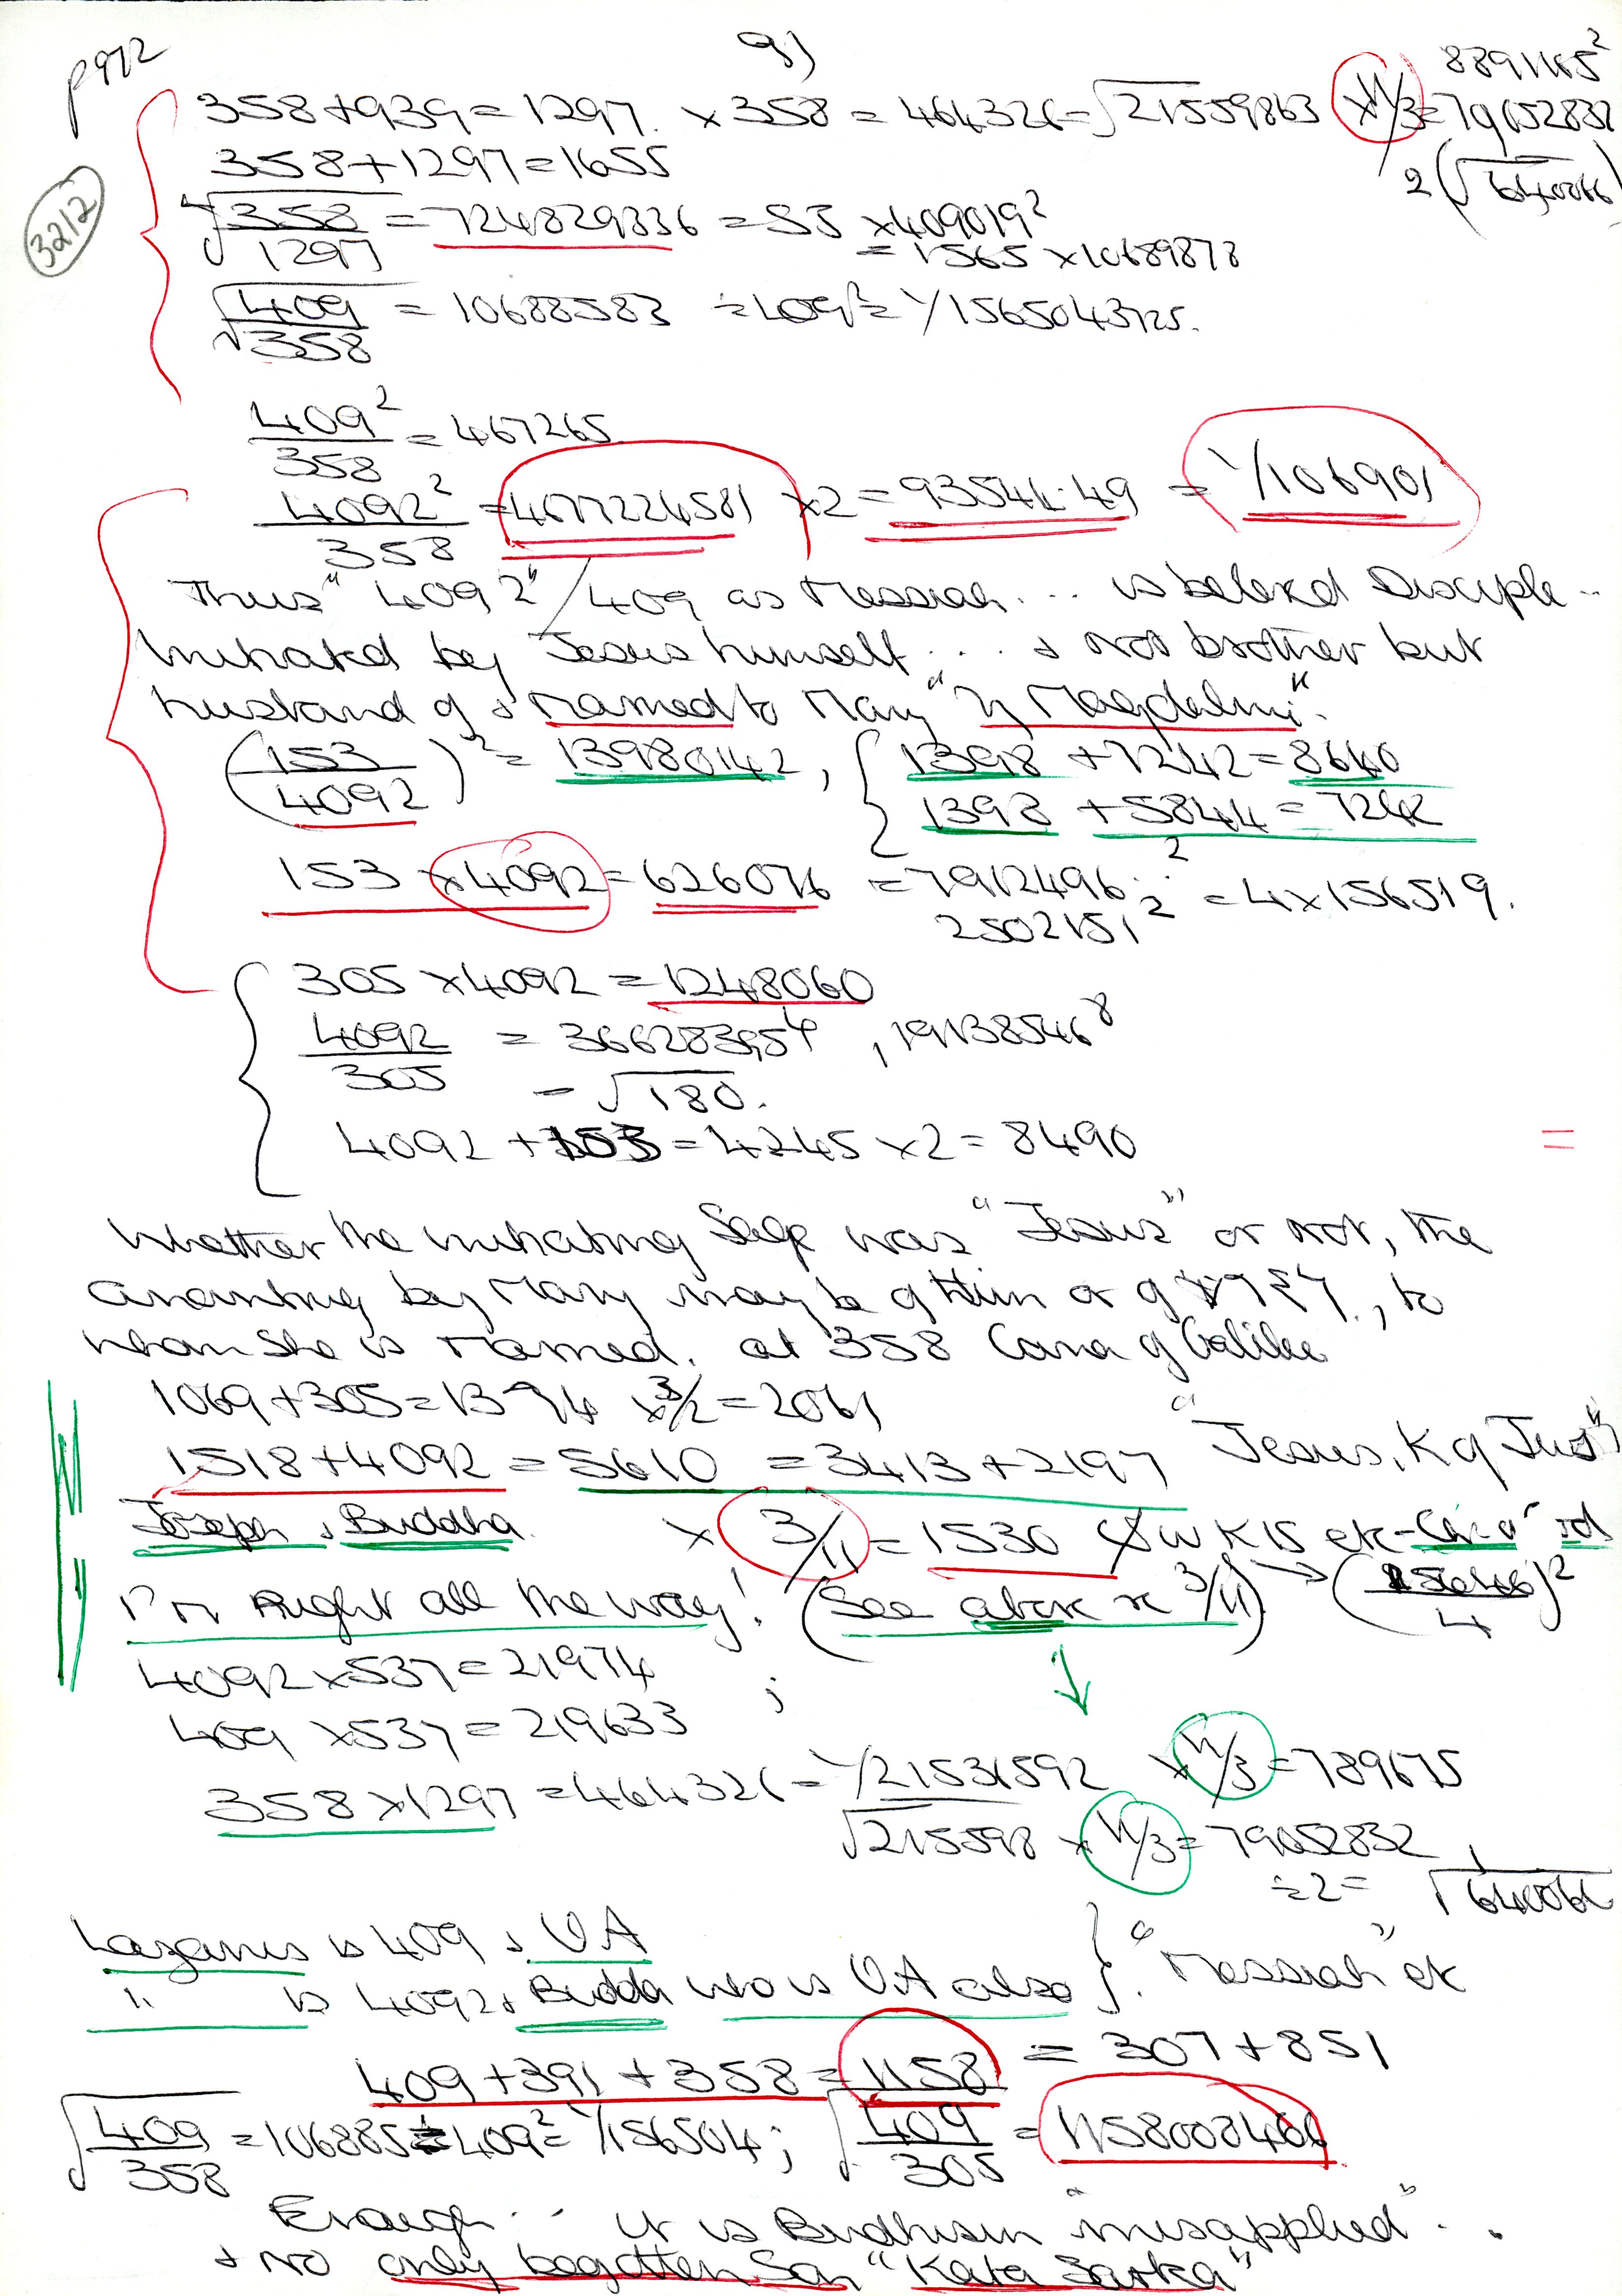 p 972
9)
8891165²
358+939=1297. ×358 = 464326=√21559863 ×11/3=79052832
358+1297=1655
2(√640066)
3212
√358/1297 = 724829336 = 53 ×409019²
= 1565 ×10689878
√409/358 = 10688583 ÷409²= 1/1565043725.
409²/358 = 467265
4092²/358 = 4677224581 ×2 = 93544.49 = 1/106901
Thus "4092"/409 as Messiah... is beloved Disciple..
Initiated by Jesus himself... & not brother but
husband of & married to Mary "η Magdalini".
(153/4092)² = 13980142, {1398 +7242=8640
1398 +5844=7242
153 ×4092=626076 =7912496² = 4×156519.
2502151²
305 ×4092 = 1248060
4092/305 = 366283954, 191385468
= √180.
4092 +153=4245 ×2=8490
=
Whether the initiating Sage was "Jesus" or not, the
anointing by Mary may be of Him or of, to
whom she is married. at 358 Cana of Galilee
1069+305=1374 ×3/2=2061
1518+4092=5610 =3413+2197 "Jesus, K of Jews"
Joseph & Buddha × 3/11=1530
I'm Right all the way! (See above × 3/11) → ( /4)²
4092×537=21974 ;
409 ×537=219633
358×1297=464326=1/21536592 ×11/3=789675
√215598 ×11/3=79052832
÷2= 1/√640066
Lazarus is 409 & VA
" is 4092 & Budda who is VA also }. "Messiah" etc
409+391+358=1158 = 307+851
√409/358=106885÷409²=1/156504; √409/305 =1158008466
Enough.. it is Budhism "misapplied"...
& no only begotten Son "Kata Sarka"